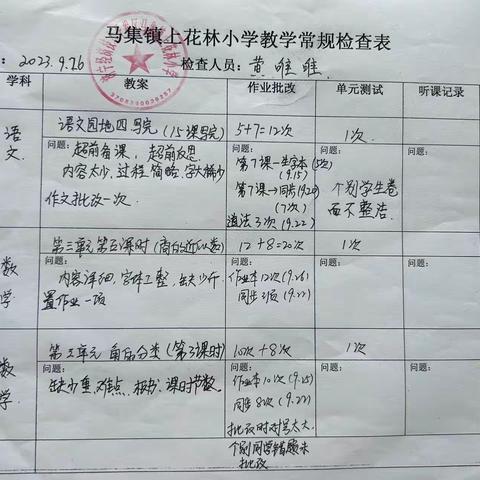 马集镇上花林小学教学常规检查表
: 2023.9.26 检查人员: 黄唯唯
学科 教案 作业批改 单元测试 听课记录
语文
语文园地四写完(15课写完) 5+7=12次 1次
问题: 超前备课,超前反思.
内容太少,过程简略,字大偏少
作文批改一次
问题:
第7课→生字本(5次)
(9.15)
第7课→同步(9.20)
(7次)
道法3次(9.22)
问题:
个别学生卷
面不整洁.
问题:
数学
第三单元第五课时(商的近似数) 12+8=20次 1次
问题:
内容详细,字体工整,缺少作
置作业一项
问题:
作业本12次(9.26)
同步2页(9.22)
问题:
问题:
数学
第三单元 角的分类(第3课时) 10次+8次 1次
问题:
缺少重、难点、板书、课时节数.
问题:
作业本10次(9.25)
同步8次(9.22)
批改时对号太大.
个别同学错题未
批改
问题:
问题:
3708300039257